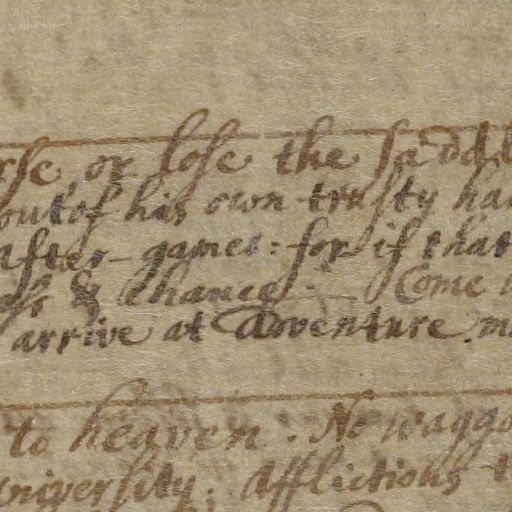 rse, or lose the saddl
out of his own trusty ha
after-games: for if that
& Chance. Come
arrive at adventure. m
to heaven. No waggo
niversity. Afflictions t